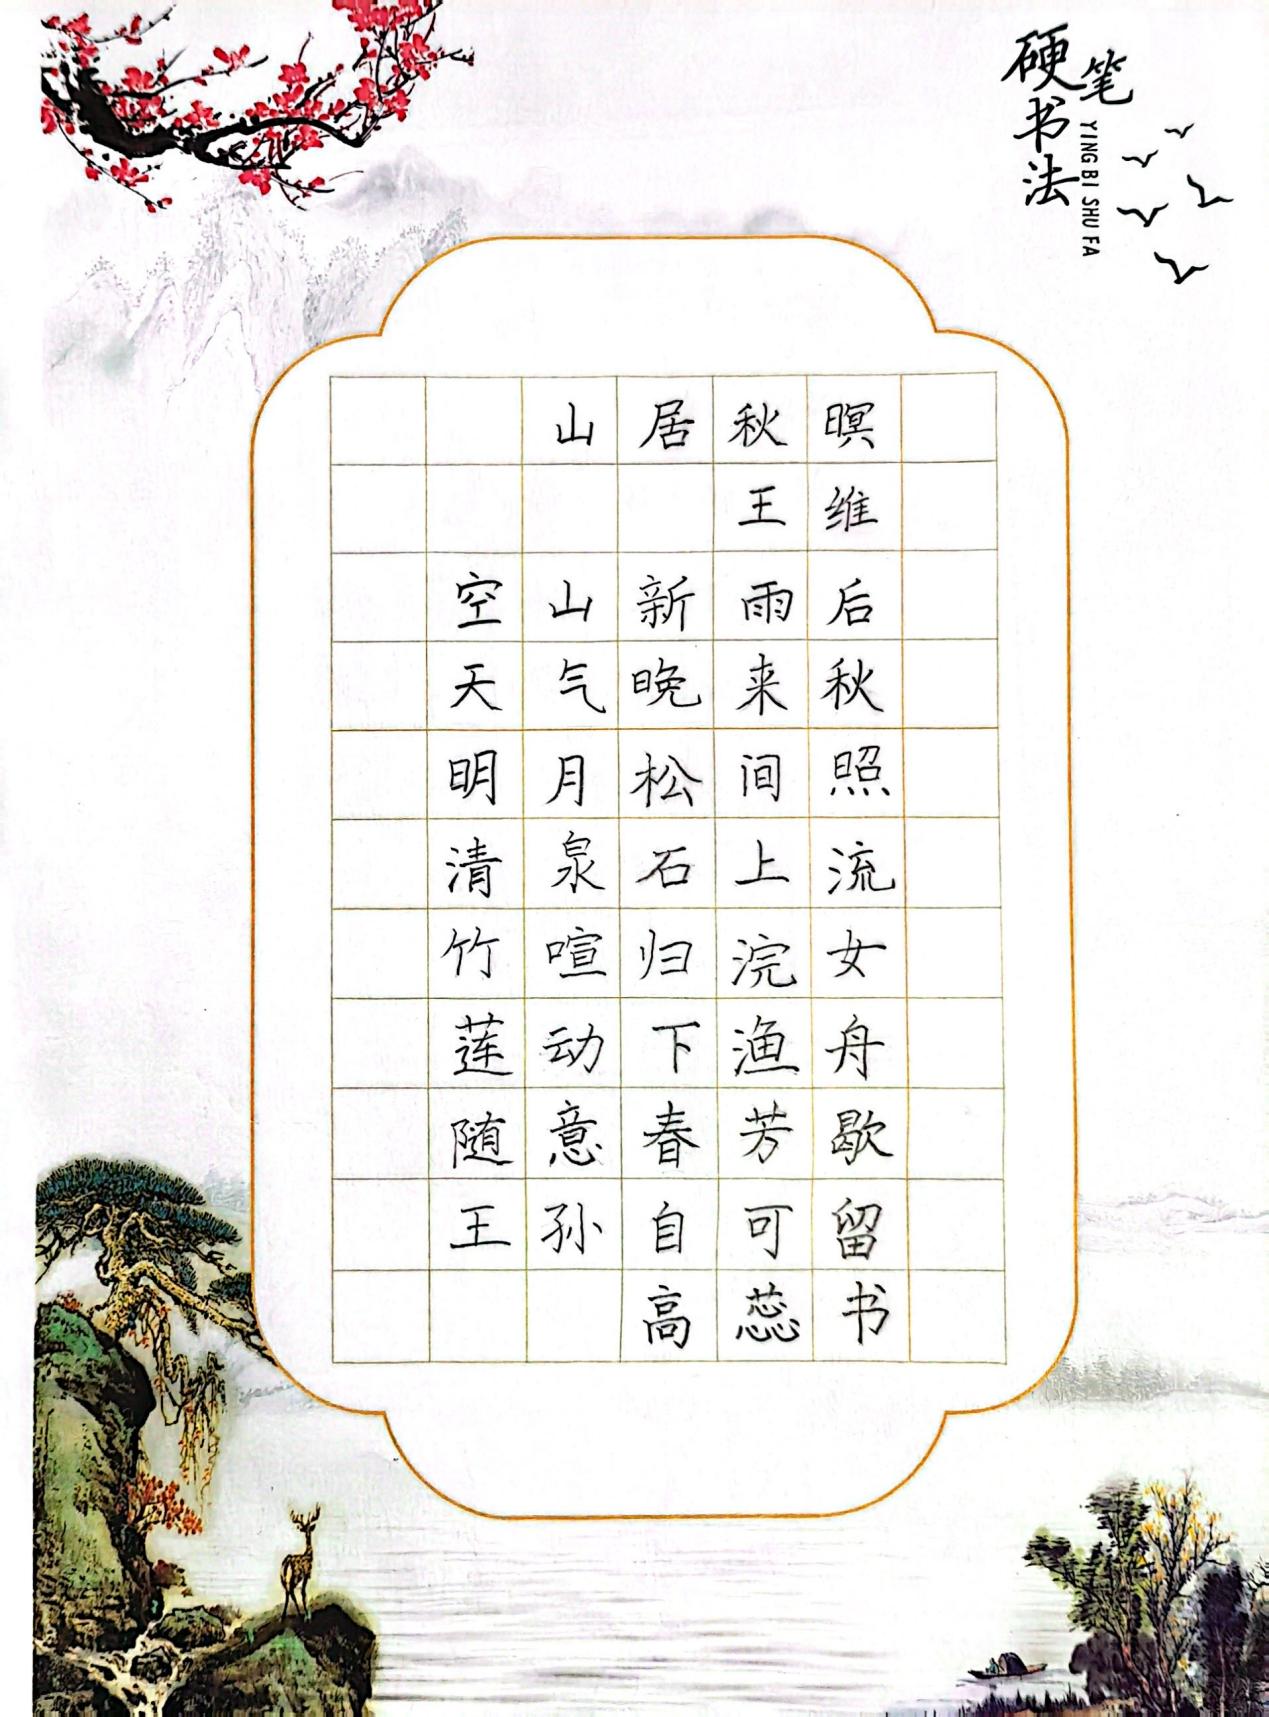 硬笔书法
YING BI SHU FA
山居秋暝
王维
空山新雨后
天气晚来秋
明月松间照
清泉石上流
竹喧归浣女
莲动下渔舟
随意春芳歇
王孙自可留
高蕊书